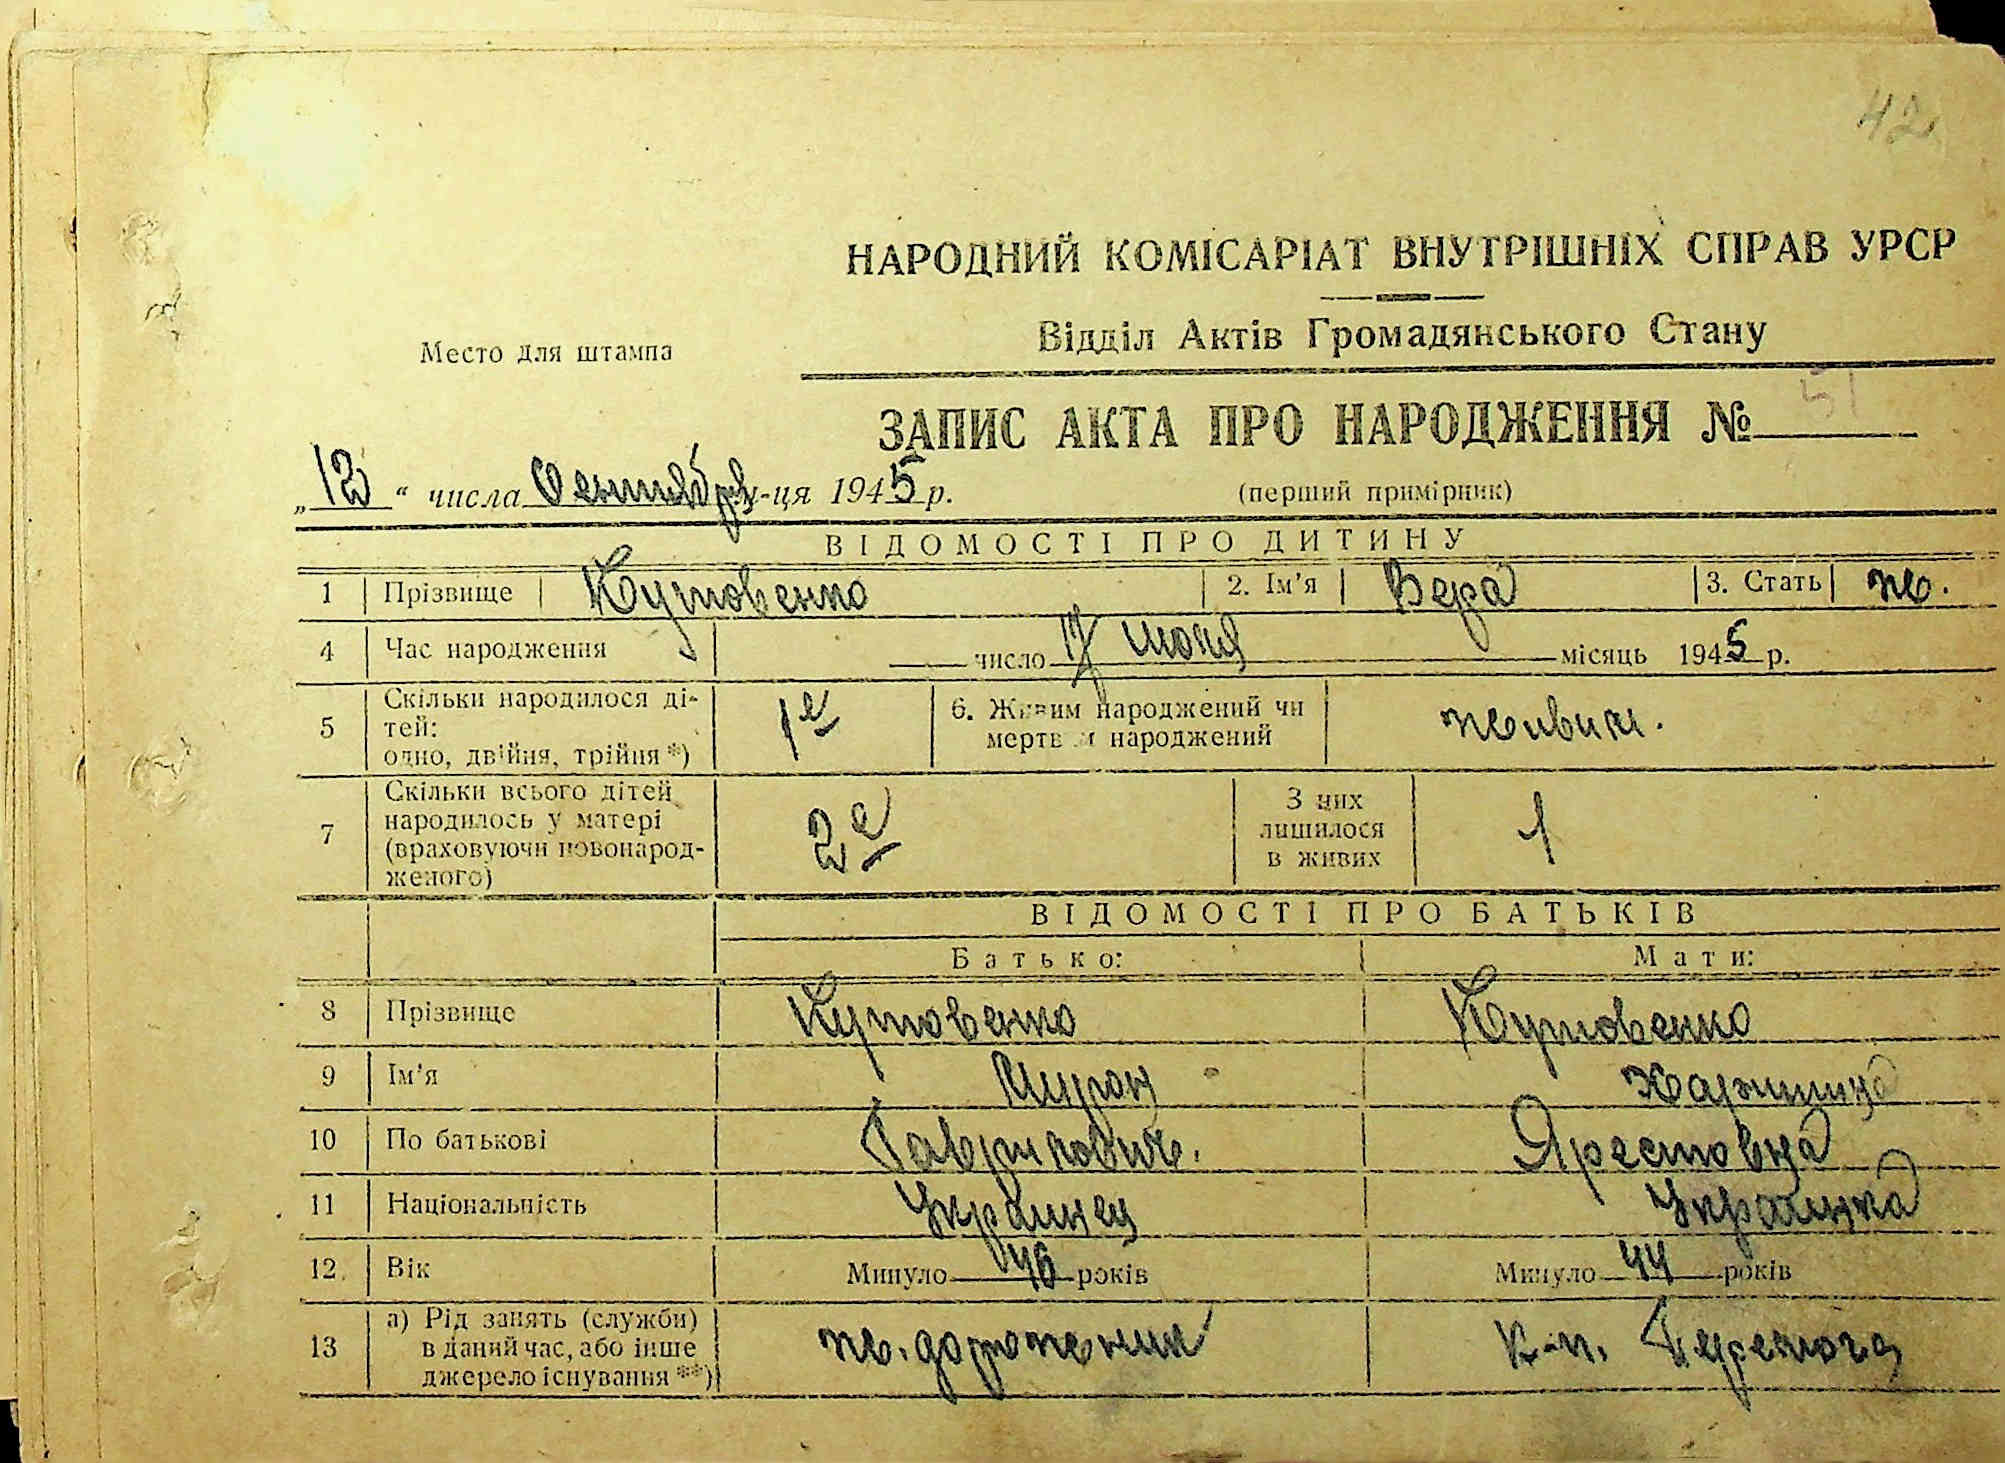 42
НАРОДНИЙ КОМІСАРІАТ ВНУТРІШНІХ СПРАВ УРСР
Відділ Актів Громадянського Стану
Место для штампа
ЗАПИС АКТА ПРО НАРОДЖЕННЯ № 51
„12“ числа Сентября м-ця 1945 р.
(перший примірник)
ВІДОМОСТІ ПРО ДИТИНУ
1 Прізвище Кутовенко 2. Ім'я Вера 3. Стать ж.
4 Час народження число 17 июня місяць 1945 р.
5 Скільки народилося ді-
тей:
одно, двійня, трійня *) 1е
6. Живим народжений чи
мертвим народжений живым.
7 Скільки всього дітей
народилось у матері
(враховуючи новонарод-
женого) 2е
З них
лишилося
в живих 1
ВІДОМОСТІ ПРО БАТЬКІВ
Батько: Мати:
8 Прізвище Кутовенко Кутовенко
9 Ім'я Мирон Харитина
10 По батькові Гаврилович. Арестовна
11 Національність Украинец Украинка
12 Вік Минуло 46 років Минуло 44 років
13 а) Рід занять (служби)
в даний час, або інше
джерело існування **) ж. дорожник к-п. Перемога